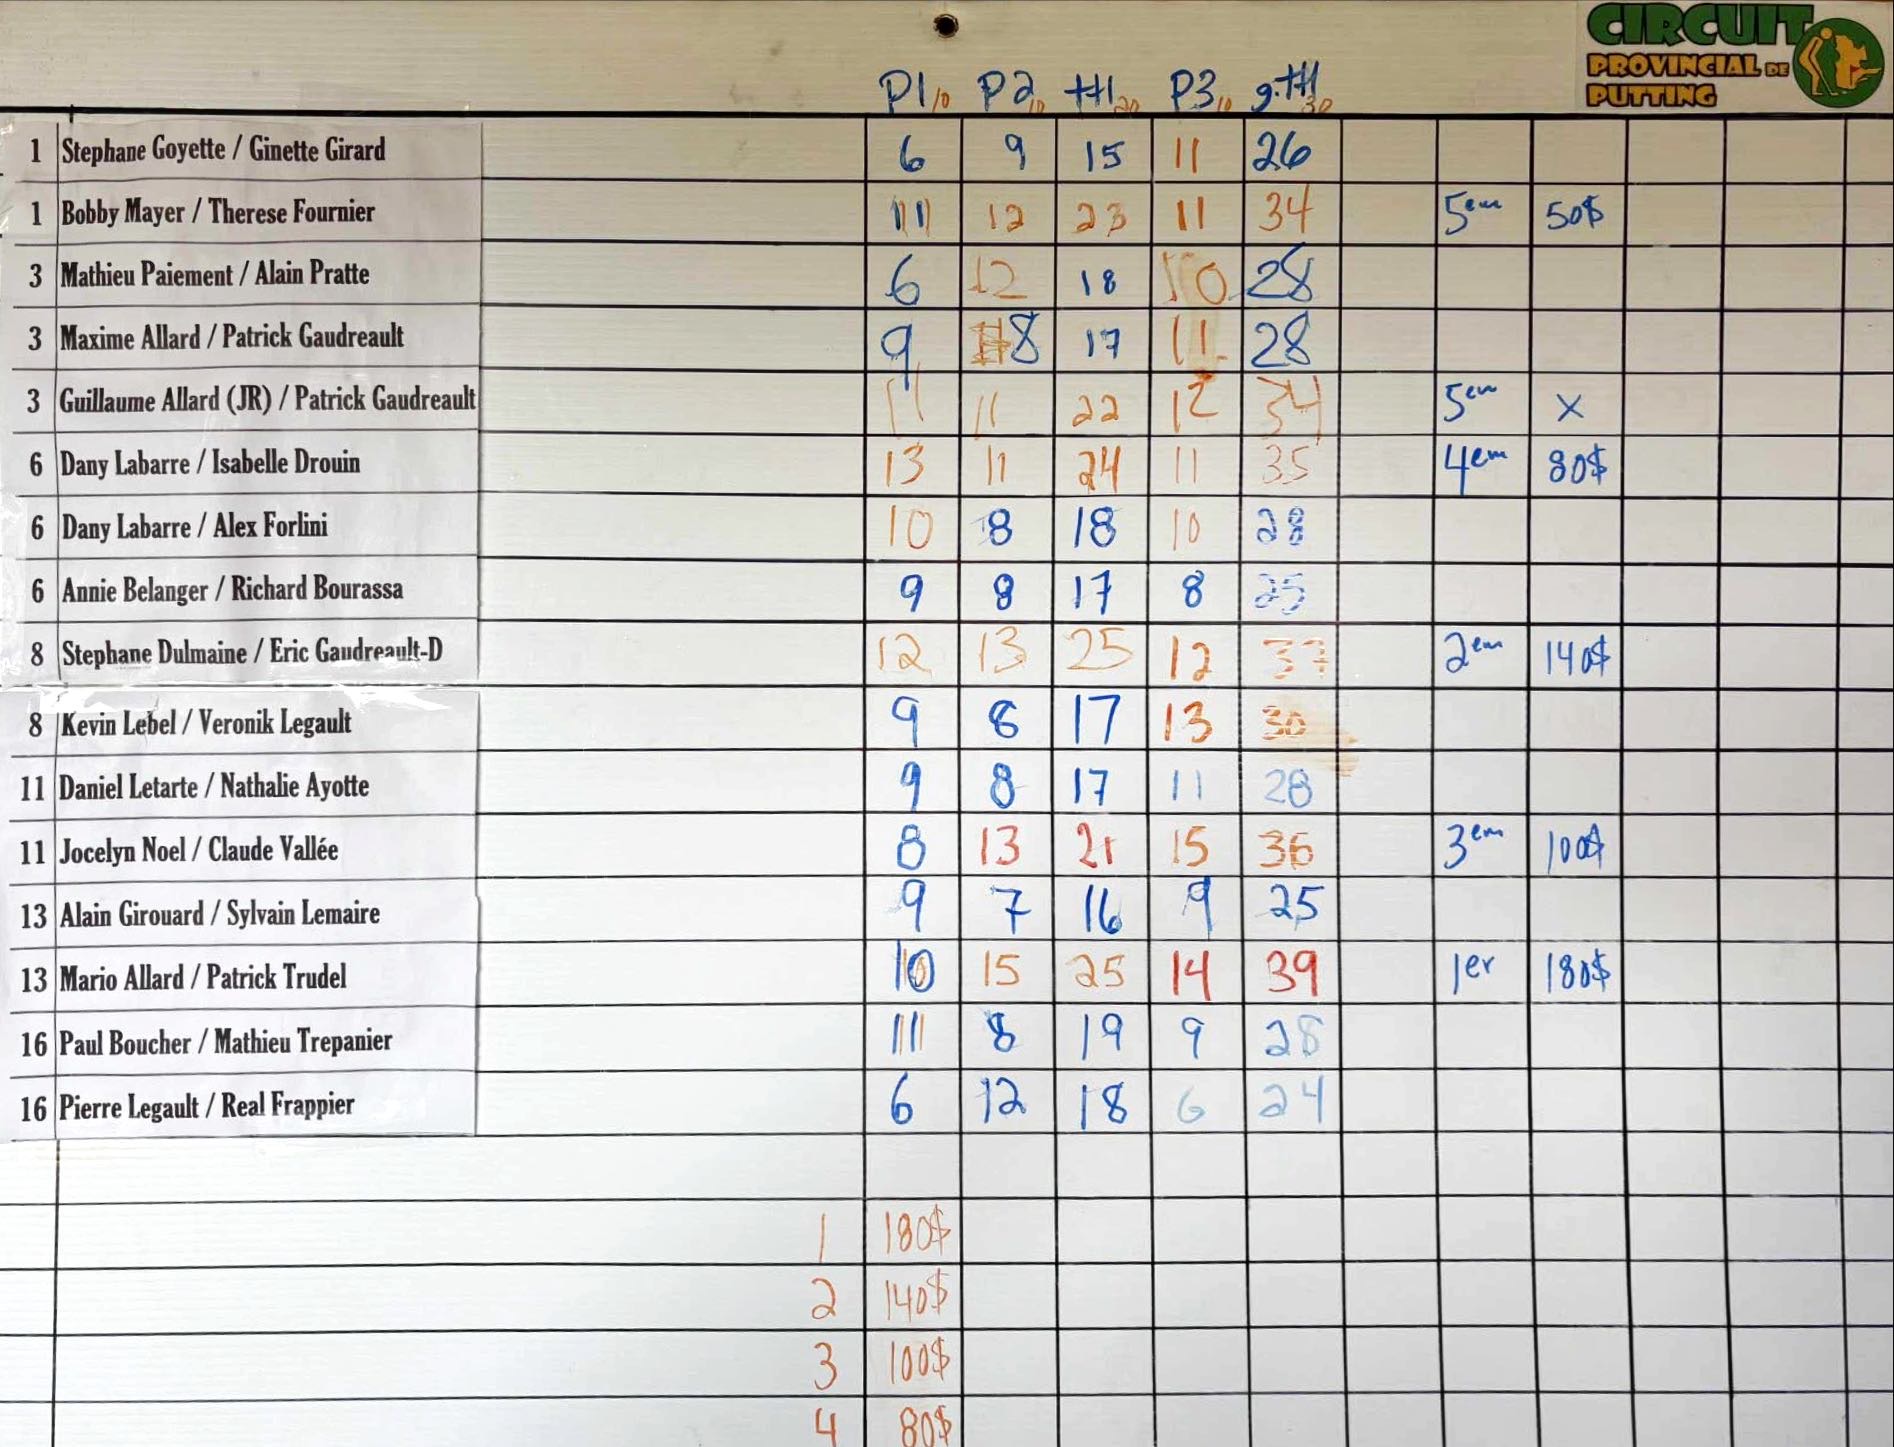 CIRCUIT
PROVINCIAL DE
PUTTING
P1/10 P2/10 ttl/20 P3/10 g.ttl/30
1 Stephane Goyette / Ginette Girard 6 9 15 11 26
1 Bobby Mayer / Therese Fournier 11 12 23 11 34 5em 50$
3 Mathieu Paiement / Alain Pratte 6 12 18 10 28
3 Maxime Allard / Patrick Gaudreault 9 8 17 11 28
3 Guillaume Allard (JR) / Patrick Gaudreault 11 11 22 12 34 5em X
6 Dany Labarre / Isabelle Drouin 13 11 24 11 35 4em 80$
6 Dany Labarre / Alex Forlini 10 8 18 10 28
6 Annie Belanger / Richard Bourassa 9 8 17 8 25
8 Stephane Dulmaine / Eric Gaudreault-D 12 13 25 12 37 2em 140$
8 Kevin Lebel / Veronik Legault 9 8 17 13 30
11 Daniel Letarte / Nathalie Ayotte 9 8 17 11 28
11 Jocelyn Noel / Claude Vallée 8 13 21 15 36 3em 100$
13 Alain Girouard / Sylvain Lemaire 9 7 16 9 25
13 Mario Allard / Patrick Trudel 10 15 25 14 39 1er 180$
16 Paul Boucher / Mathieu Trepanier 11 8 19 9 28
16 Pierre Legault / Real Frappier 6 12 18 6 24
1 180$
2 140$
3 100$
4 80$